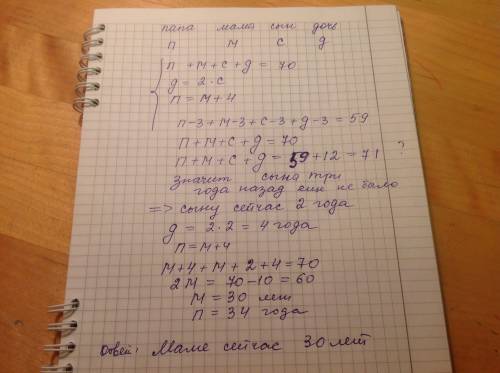 папа мама сын дочь
п м с д
п + м + с + д = 70
д = 2 · с
п = м + 4
п-3 + м-3 + с-3 + д-3 = 59
п + м + с + д = 70
п + м + с + д = 59 + 12 = 71 ?
Значит сына три
года назад еще не было
=> сыну сейчас 2 года
д = 2 · 2 = 4 года
п = м + 4
м + 4 + м + 2 + 4 = 70
2м = 70 - 10 = 60
м = 30 лет
п = 34 года
Ответ: Маме сейчас 30 лет